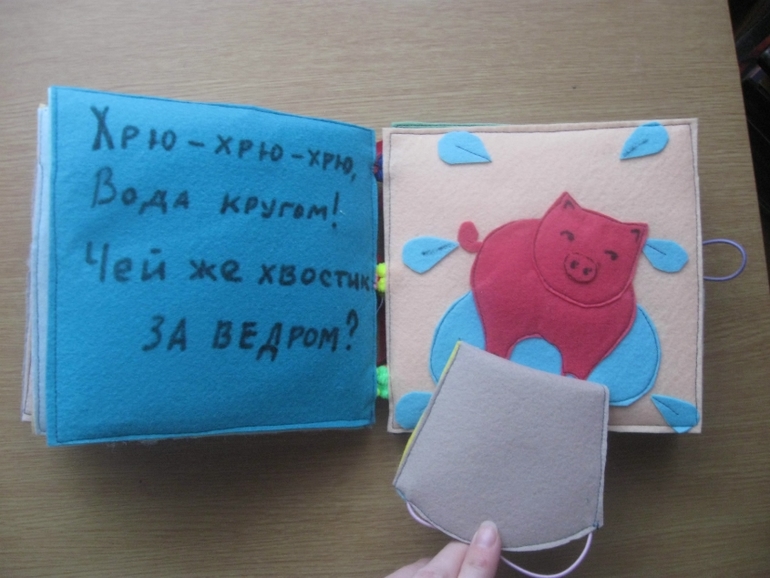 Хрю-хрю-хрю,
Вода кругом!
Чей же хвостик
за ведром?